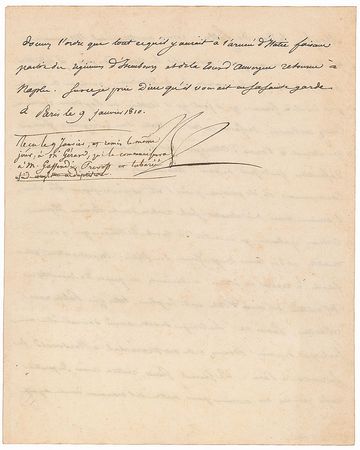 Donnez l'ordre que tout ce qu'il y aurait à l'armée d'Italie faisant
partie des régimens d'Isembourg et de la tour d'auvergne retourne à
Naples. Sur ce je prie Dieu qu'il vous ait en sa sainte garde
à Paris le 9 janvier 1810.
Reçu le 9 Janvier, et remis le même
jour, à Mr Gérard, qui le communiquera
à M.